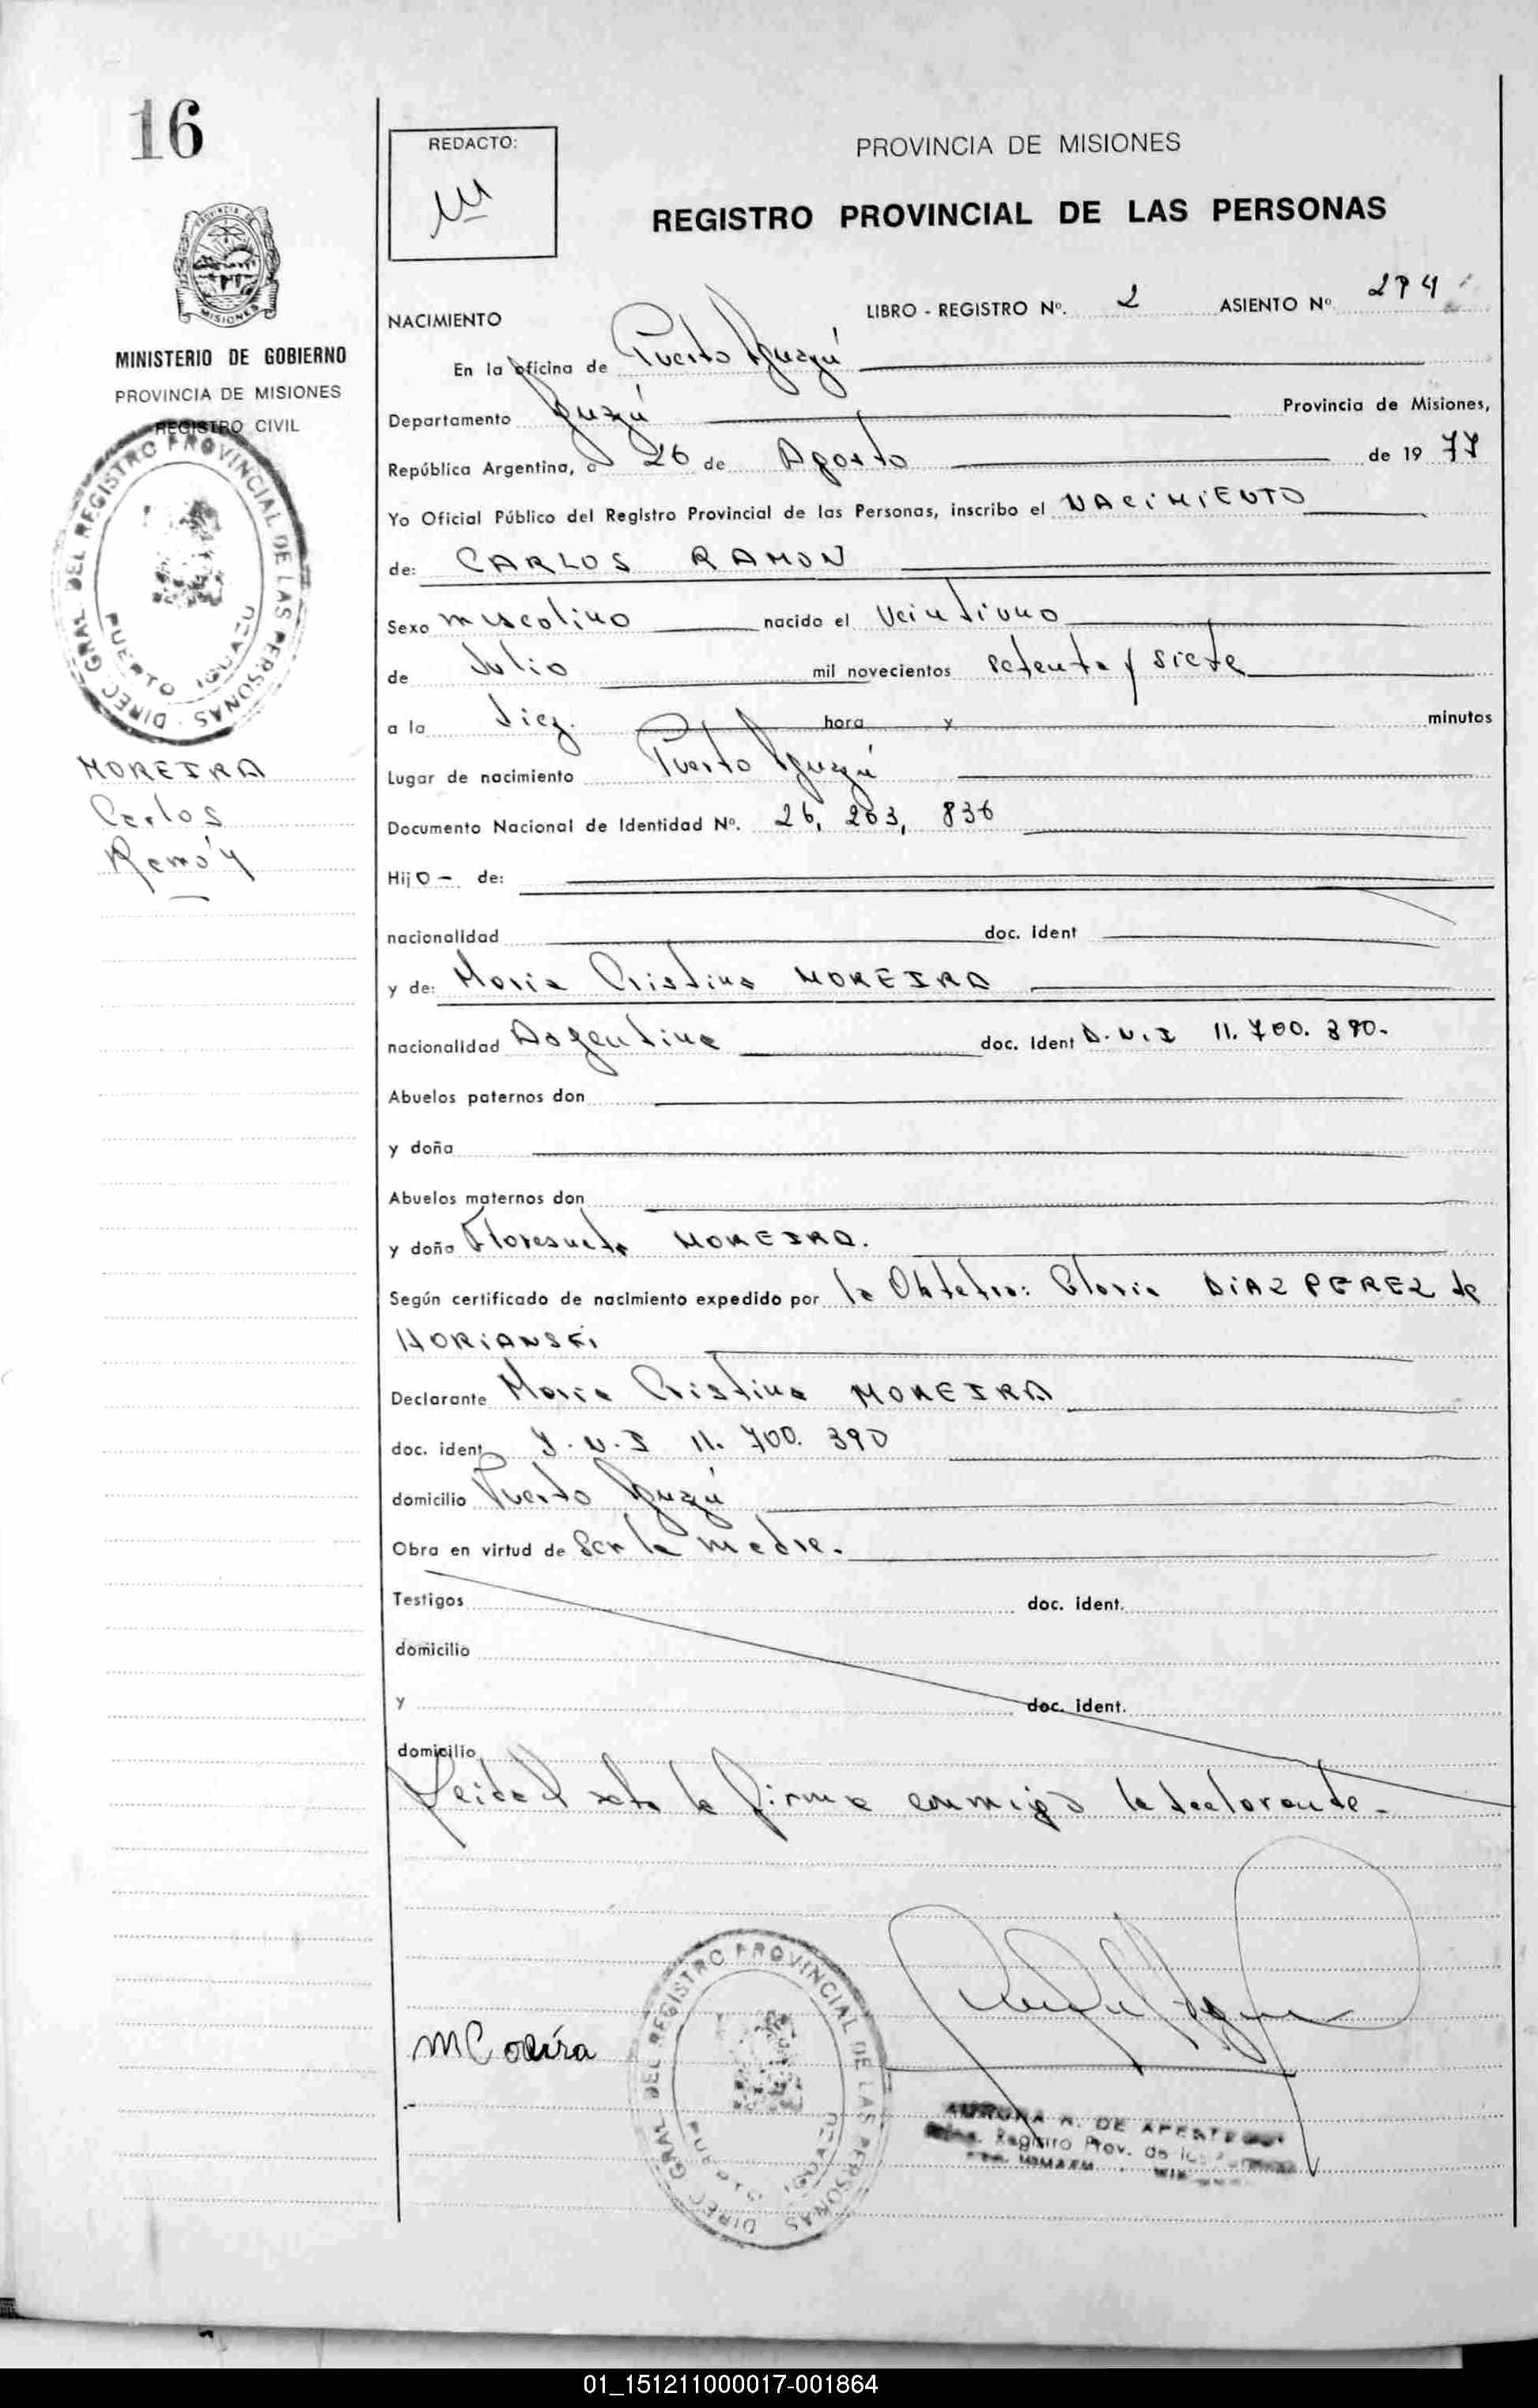 16
REDACTO:
PROVINCIA DE MISIONES
REGISTRO PROVINCIAL DE LAS PERSONAS
PROVINCIA DE
MISIONES
MINISTERIO DE GOBIERNO
PROVINCIA DE MISIONES
REGISTRO CIVIL
DIREC. GRAL. DEL REGISTRO PROVINCIAL DE LAS PERSONAS
PUERTO IGUAZU
MOREIRA
Carlos
Ramón
NACIMIENTO
LIBRO - REGISTRO Nº. 2 ASIENTO Nº 274
En la oficina de Puerto Iguazú
Departamento Iguazú Provincia de Misiones,
República Argentina, a 26 de Agosto de 1977
Yo Oficial Público del Registro Provincial de las Personas, inscribo el NACIMIENTO
de: CARLOS RAMON
Sexo masculino nacido el Veintiuno
de Julio mil novecientos setenta y siete
a la diez hora y minutos
Lugar de nacimiento Puerto Iguazú
Documento Nacional de Identidad Nº. 26, 203, 836
Hijo - de:
nacionalidad doc. ident
y de: Maria Cristina MOREIRA
nacionalidad Argentina doc. Ident D.N.I 11.700.390-
Abuelos paternos don
y doña
Abuelos maternos don
y doña MOREIRA.
Según certificado de nacimiento expedido por la Obtetra: Gloria DiAZ PEREZ de
HORiANSKi
Declarante Maria Cristina MOREIRA
doc. ident D.N.I 11.700.390
domicilio Puerto Iguazú
Obra en virtud de Ser la madre.
Testigos doc. ident.
domicilio
y doc. ident.
domicilio
Leida el acta la firma conmigo la declarante-
DIREC. GRAL. DEL REGISTRO PROVINCIAL DE LAS PERSONAS
PUERTO IGUAZU
AURORA DE
Registro Prov. de las
01_151211000017-001864